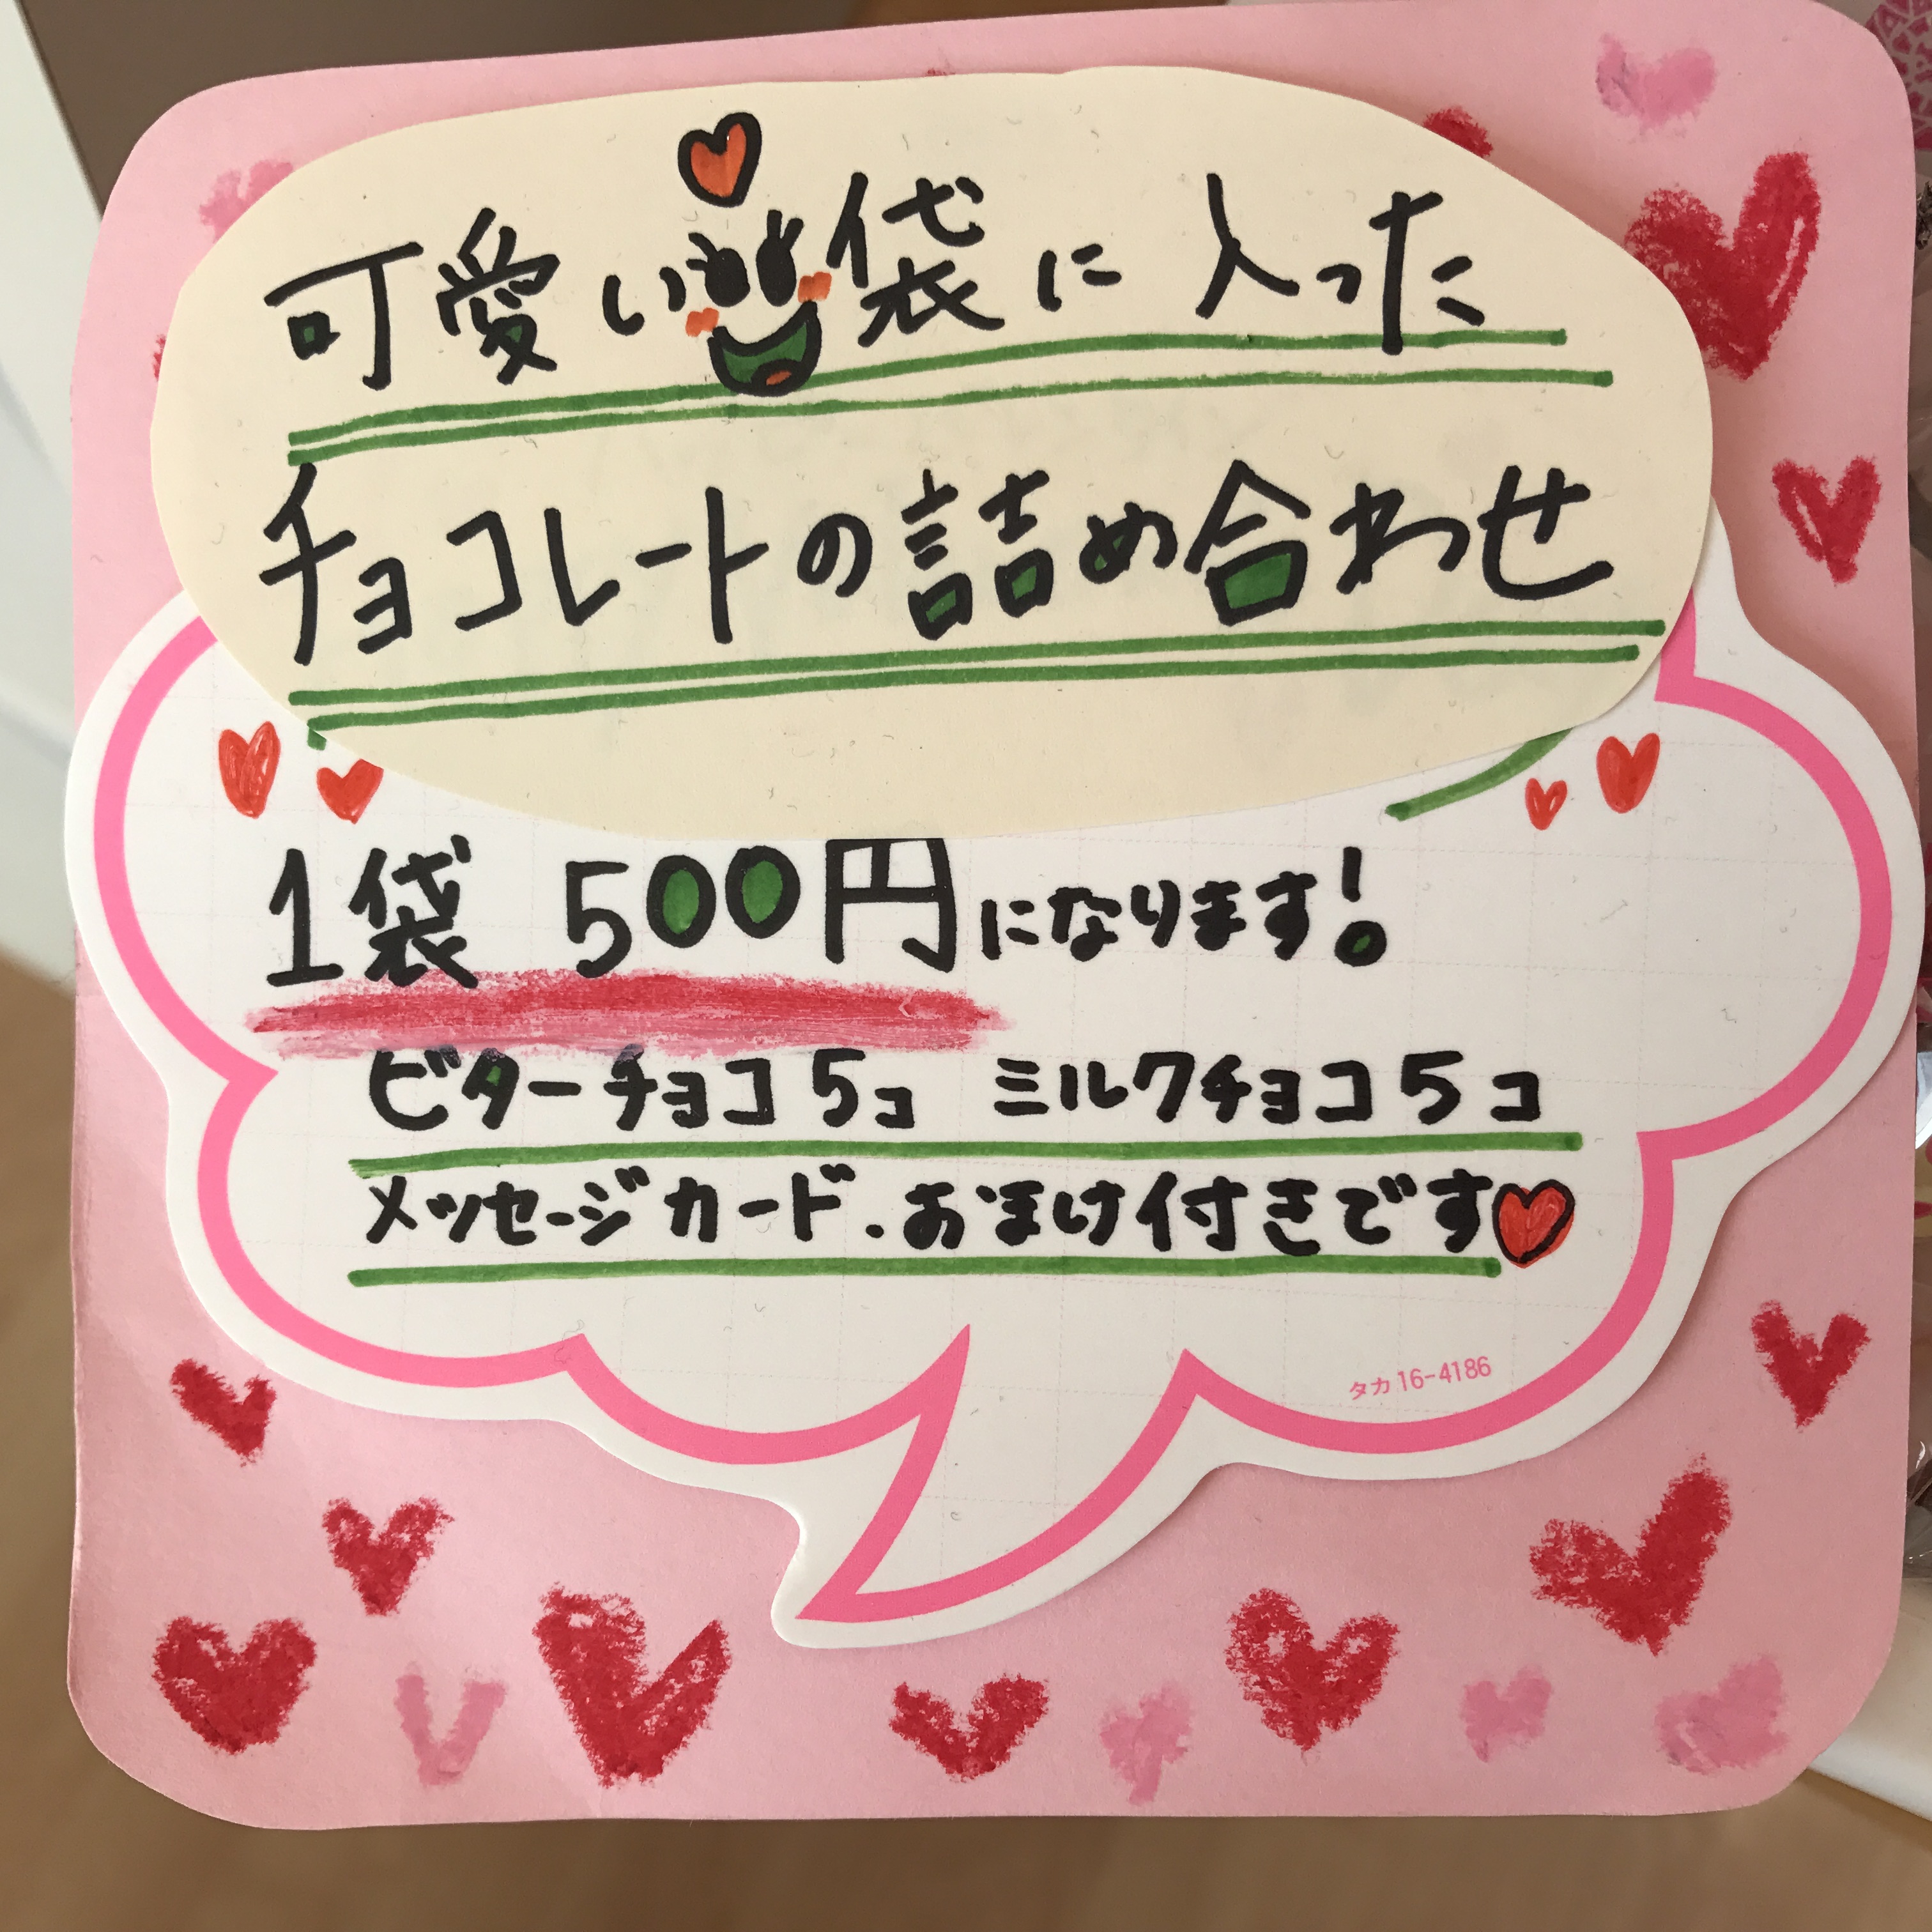 可愛い袋に入った
チョコレートの詰め合わせ
1袋 500円になります!
ビターチョコ5コ ミルクチョコ5コ
メッセージカード・おまけ付きです
タカ 16-4186